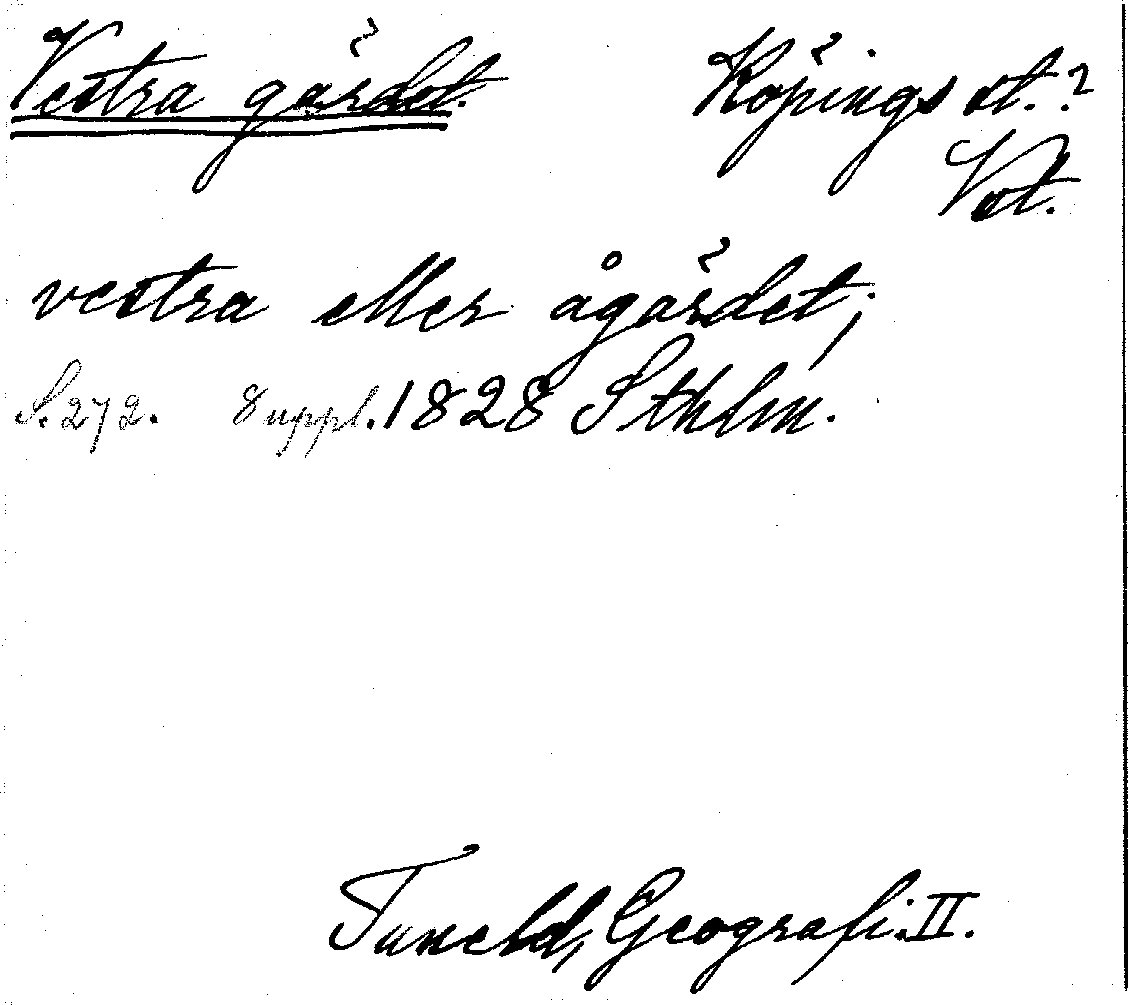 Vestra gärdet. Köpings st.?
Vst.
vestra eller ågärdet;
S. 272. Suppl. 1828 Sthlm.
Tuneld, Geografi. II.